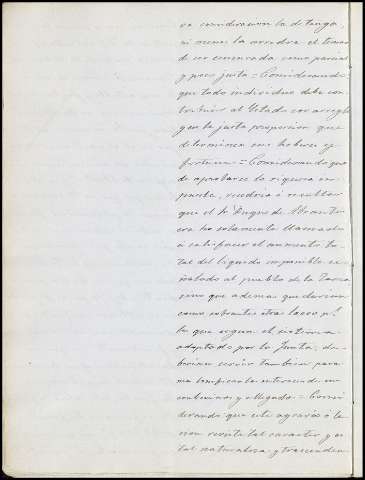 va consideracion la detenga,
ni menos la arredra el temor
de ser censurada como parcial
y poco justa = Considerando
que todo individuo debe con-
tribuir al Estado con arreglo
y en la justa proporcion que
determinen sus haberes y
fortuna = Considerando que
de aprobarse la riqueza im-
puesta, vendria á resultar
que el Sr Duque de Abrante
era no solamente llamado
á satisfacer el aumento to-
tal del liquido imponible se-
ñalado al pueblo de la Zarza
sino que ademas quedarian
como sobrante otra
la que segun el sistema
adoptado por la Junta, de-
berian servir tambien para
la
y allegados = Consi-
derando que este agravio ó le-
sion reviste tal caracter y es
tal naturaleza y trascenden-